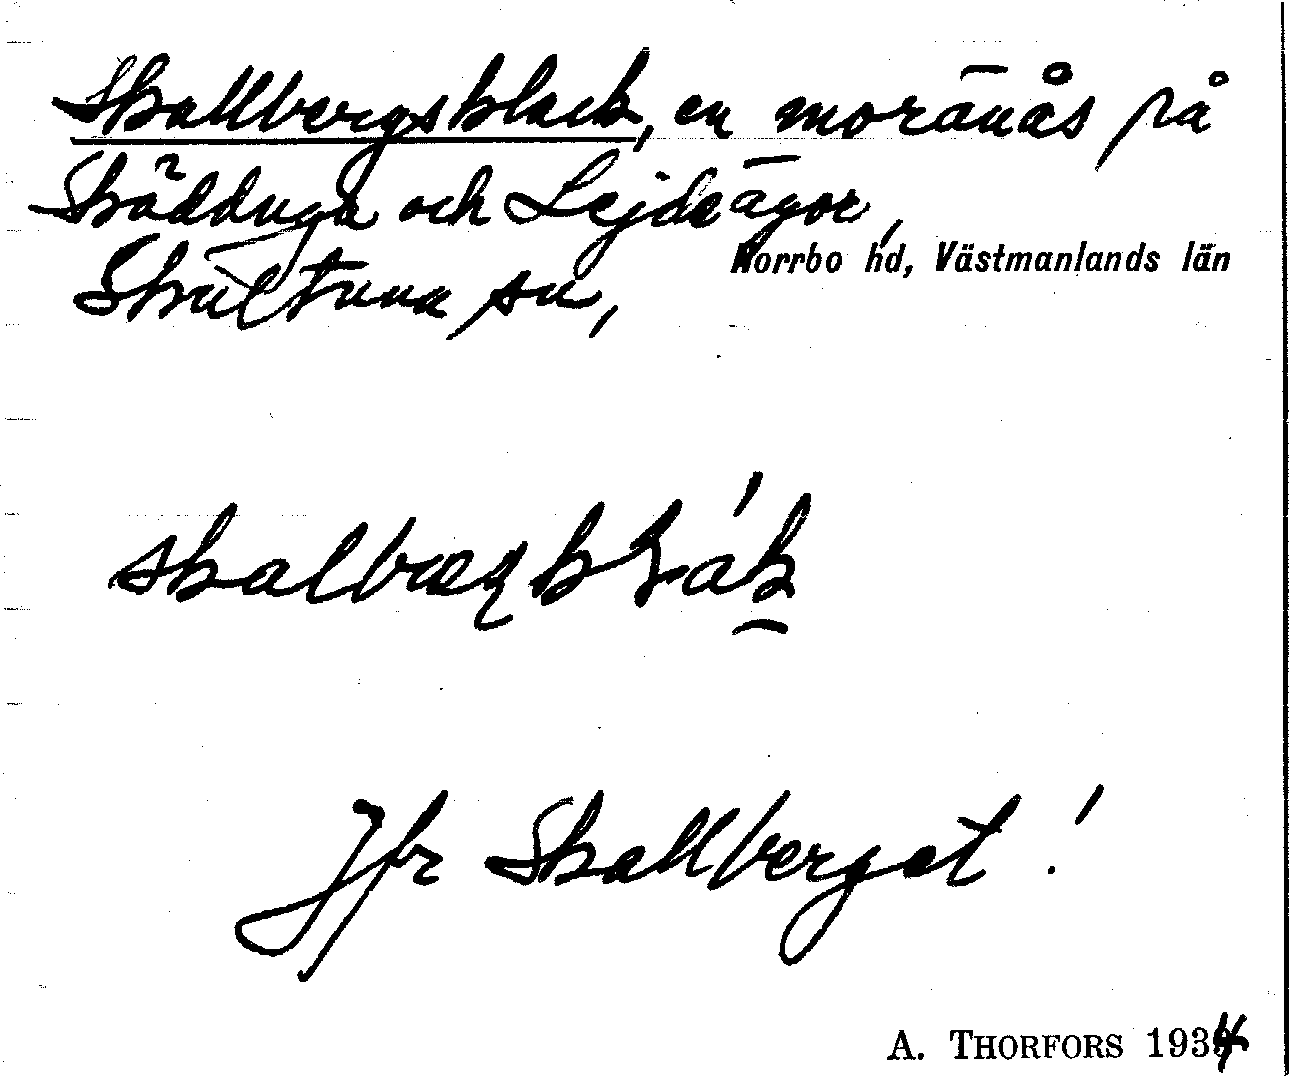 Skallbergsklack, en moränås på
Skädduga och Lejdeägor,
Skultuna sn,
Norrbo hd, Västmanlands län
Jfr Skallberget!
A. THORFORS 1934